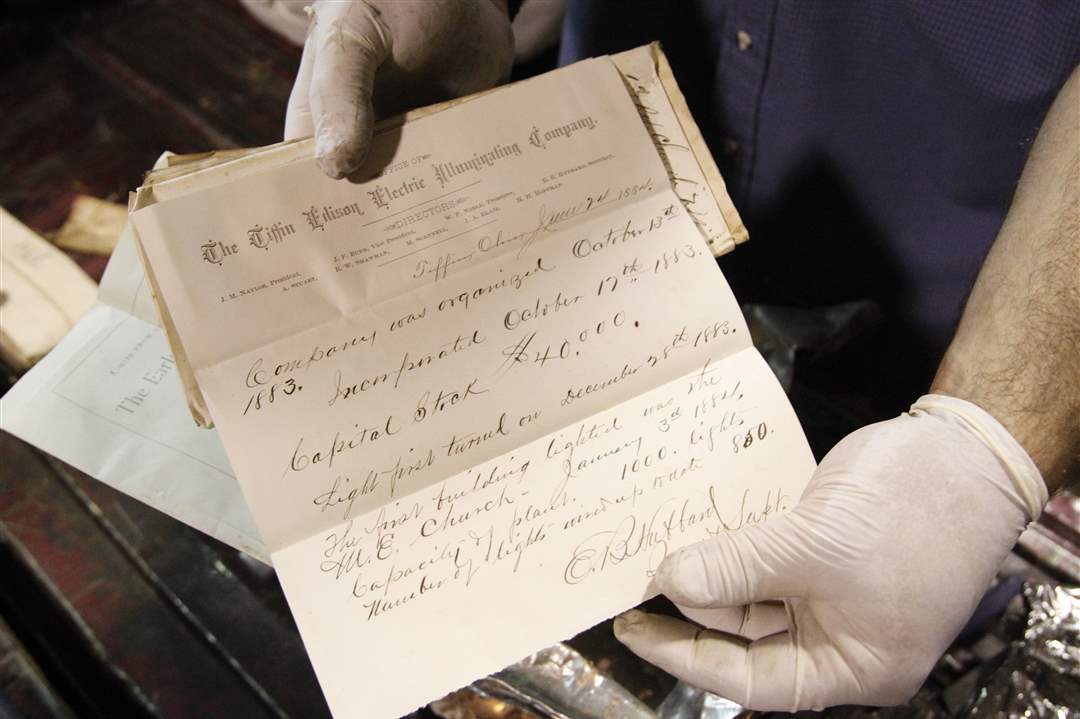 OFFICE OF
The Tiffin Edison Electric Illuminating Company.
DIRECTORS
J. M. NAYLOR, President, J. F. BUNN, Vice President, W. P. NOBLE, Treasurer, E. B. HUBBARD, Secretary.
A. STUART. R. W. SHAWHAN. H. SCANNELL. J. A. BLAIR. H. H. SHAWHAN.
Tiffin, Ohio, June 24 1884.
Company was organized October 13th
1883. Incorporated October 17th 1883.
Capital Stock $40.000.
Light first turned on December 28th 1883.
The first building lighted was the
M. E. Church - January 3rd 1884.
Capacity of plant. 1000. lights
Number of lights wired up to date 850.
E. B. Hubbard
Supt.
The Earl